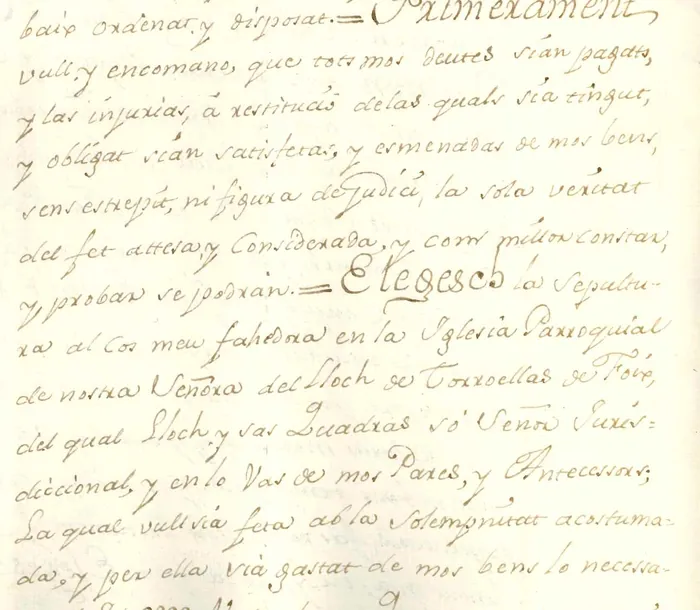 baix ordenat, y disposat.= Primerament
vull, y encomano, que tots mos deutes sían pagats,
y las injurias, á restitució delas quals sía tingut,
y obligat sían satisfetas, y esmenadas de mos bens,
sens estrepit, ni figura de Judici, la sola veritat
del fet attesa, y Considerada, y com millor constar,
y, probar se podrán.= Elegesch la Sepultu-
ra al Cos meu fahedora en la Iglesia Parroquial
de nostra Señora del Lloch de Torroellas de Foix,
del qual Lloch, y sas Quadras só Señor Juris=
diccional, y en lo Vas de mos Pares, y Antecessors;
La qual vull sía feta ab la Solempnitat acostuma-
da, y per ella sía gastat de mos bens lo necessa-